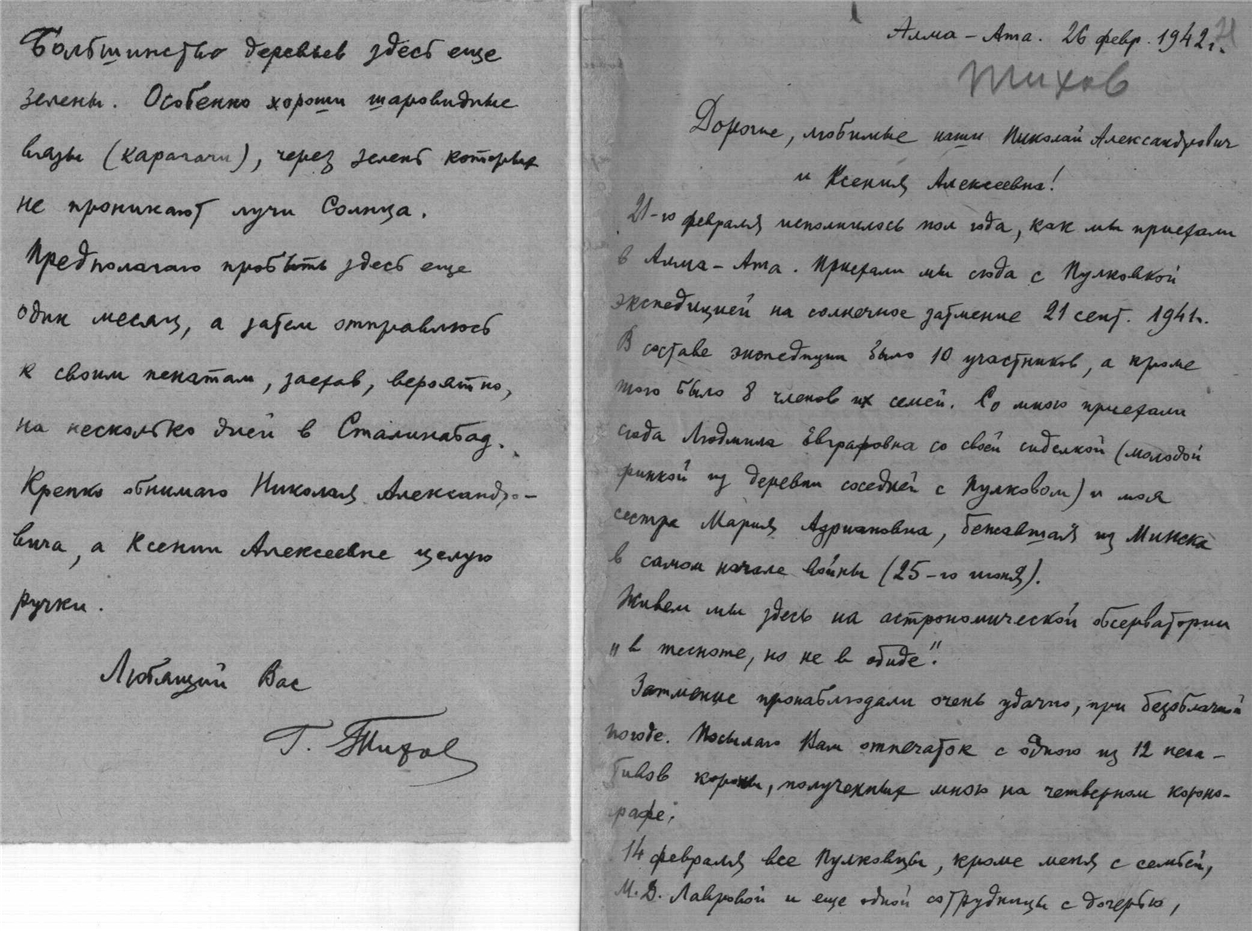 Большинство деревьев здесь еще
зелены. Особенно хороши шаровидные
вязы (карагачи), через зелень которых
не проникают лучи Солнца.
Предполагаю пробыть здесь еще
один месяц, а затем отправлюсь
к своим пенатам, заехав, вероятно,
на несколько дней в Сталинабад.
Крепко обнимаю Николая Александро-
вича, а Ксении Алексеевне целую
ручки.
Любящий Вас
Г. Тихов
Алма-Ата. 26 февр. 1942 г.
Тихов
Дорогие, любимые наши Николай Александрович
и Ксения Алексеевна!
21-го февраля исполнилось пол года, как мы приехали
в Алма-Ата. Приехали мы сюда с Пулковкой
экспедицией на солнечное затмение 21 сент. 1941 г.
В составе экспедиции было 10 участников, а кроме
того было 8 членов их семей. Со мною приехали
сюда Людмила Евграфовна со своей сиделкой (молодой
финкой из деревни соседней с Пулковом) и моя
сестра Мария Адриановна, бежавшая из Минска
в самом начале войны (25-го июня).
Живем мы здесь на астрономической обсерватории
"в тесноте, но не в обиде".
Затмение пронаблюдали очень удачно, при безоблачной
погоде. Посылаю Вам отпечаток с одного из 12 нега-
тивов короны, полученных мною на четверном короно-
графе.
14 февраля все Пулковцы, кроме меня с семьей,
М. В. Лавровой и еще одной сотрудницы с дочерью,